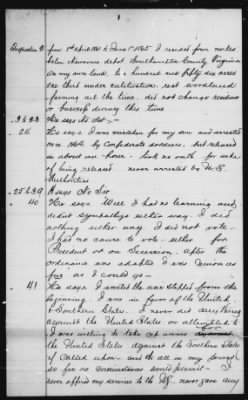 from 1st April 1861 to June 1st 1865 I resided four miles
below Newsoms depot Southampton County Virginia
on my own land, Two hundred and fifty six acres
one third under cultivation: rest woodland
farming all the time. did not change residence
or business during this time
3 & 23 He says No Sir
24 He says. I was mistaken for my son and arrested
once 1864 by Confederate soldiers, but released
in about an hour - took no oath for sake
of being released never arrested by U.S.
Authorities
25 & 39 He says No Sir
40 He says. Well I had no learning and
didnt sympathize either way. I did
nothing either way. I did not vote -
I had no cause to vote - either for
President or on Secession. After the
ordinance was adopted I was Union as
far as I could go -
41 He says. I wanted the war stopped from the
beginning. I was in favor of the United
& Southern States. I never did any thing
against the United States or attempted to
I was willing to take chances for
the United States against the Southern States
if called upon - and the all in my power
so far as circumstances would permit - I
never offered my services to the U.S. never gave any